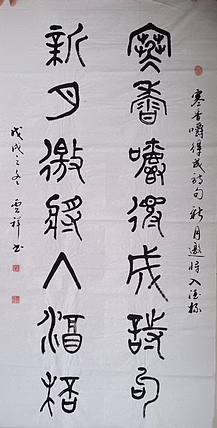 寒香嚼得成詩句新月邀將入酒杯
寒香嚼得成詩句
新月邀將入酒桮
戊戌之冬雲祥书